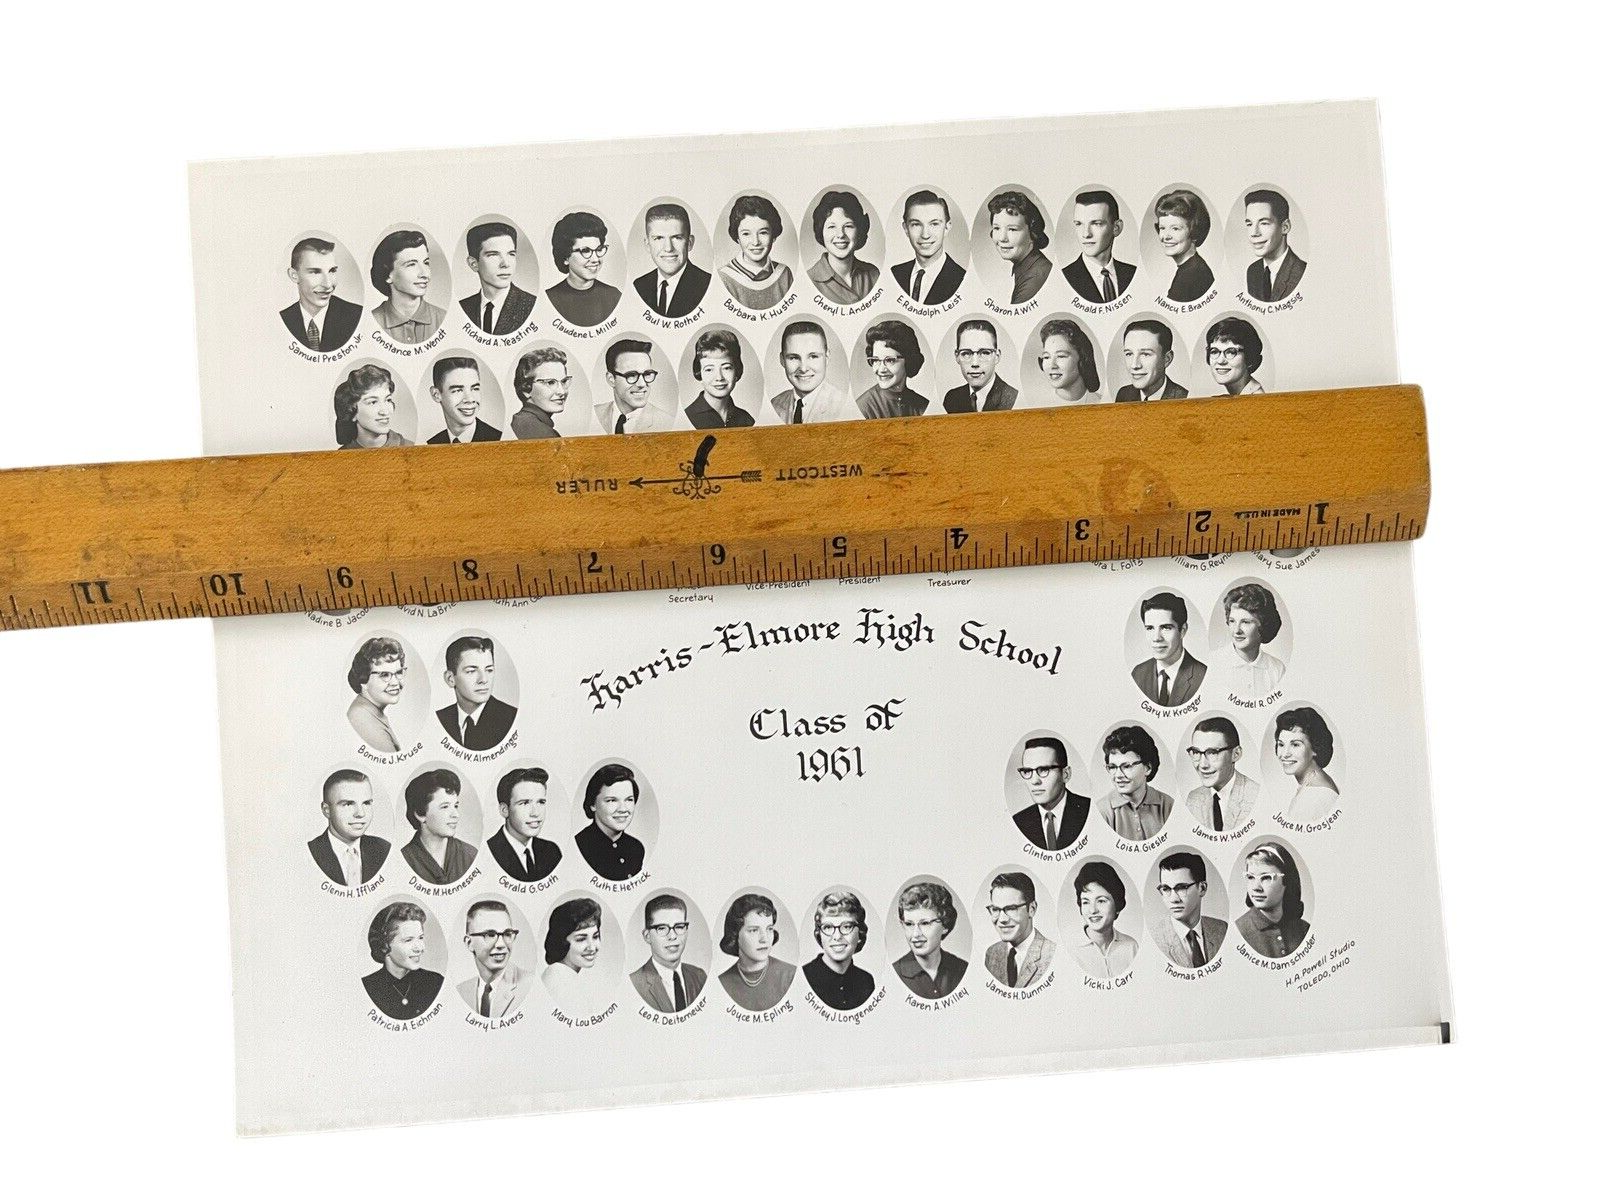 Samuel Preston, Jr.
Constance M. Wendt
Richard A. Yeasting
Claudene L. Miller
Paul W. Rothert
Barbara K. Huston
Cheryl L. Anderson
E. Randolph Leist
Sharon A. Witt
Ronald F. Nissen
Nancy E. Brandes
Anthony C. Magsig
WESTCOTT RULER
MADE IN U.S.A.
1 2 3 4 5 6 7 8 9 10 11
Nadine B. Jacob
David N. LaBrie
Ruth Ann
Secretary
Vice-President
President
Treasurer
ora L. Foltz
William G. Reyno
Mary Sue James
Harris-Elmore High School
Class of
1961
Bonnie J. Kruse
Daniel W. Almendinger
Gary W. Kroeger
Mardel R. Otte
Glenn H. Iffland
Diane M. Hennessey
Gerald G. Guth
Ruth E. Hetrick
Clinton O. Harder
Lois A. Giesler
James W. Havens
Joyce M. Grosjean
Patricia A. Eichman
Larry L. Avers
Mary Lou Barron
Leo R. Deitemeyer
Joyce M. Epling
Shirley J. Longenecker
Karen A. Willey
James H. Dunmyer
Vicki J. Carr
Thomas R. Haar
Janice M. Damschroder
H.A. Powell Studio
TOLEDO, OHIO